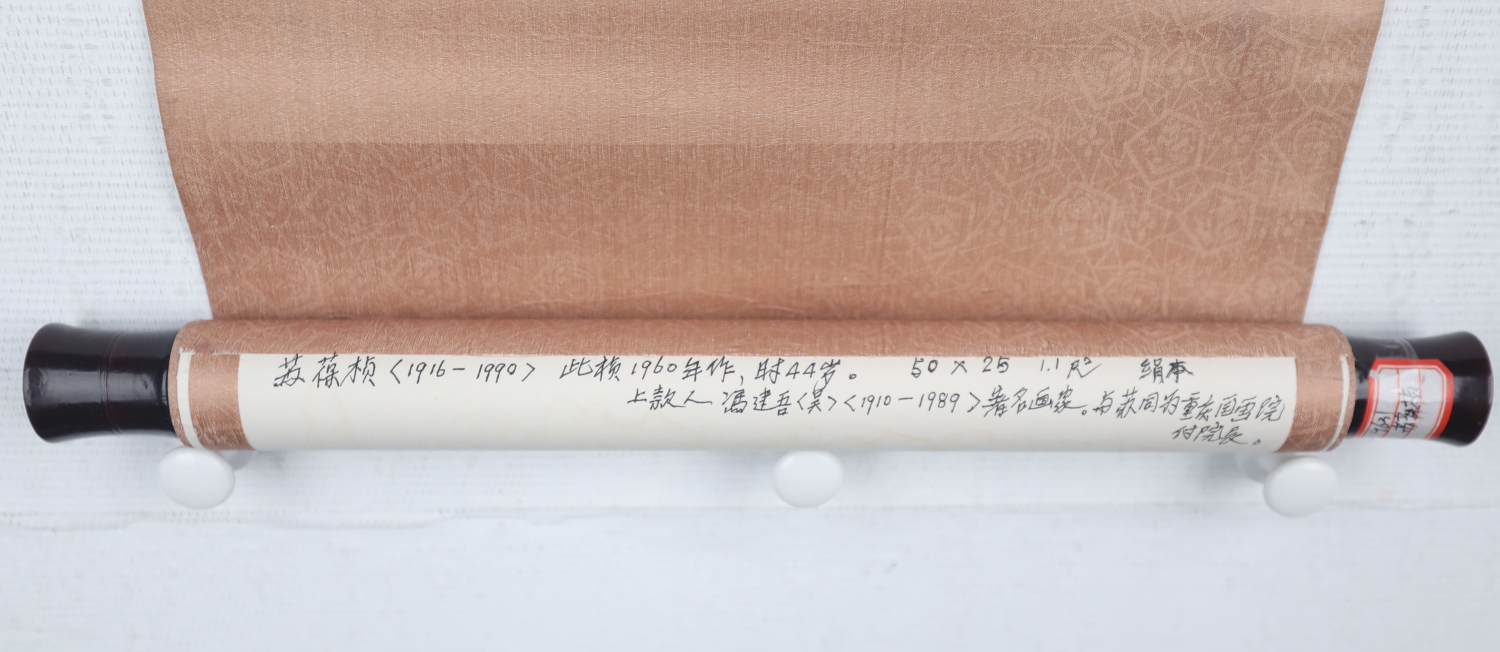 苏葆桢〈1916-1990〉 此桢1960年作，时44岁。 50×25 1.1尺² 绢本
上款人 冯建吾〈吴〉〈1910-1989〉著名画家。与苏同为重庆国画院
付院长。
苏葆桢